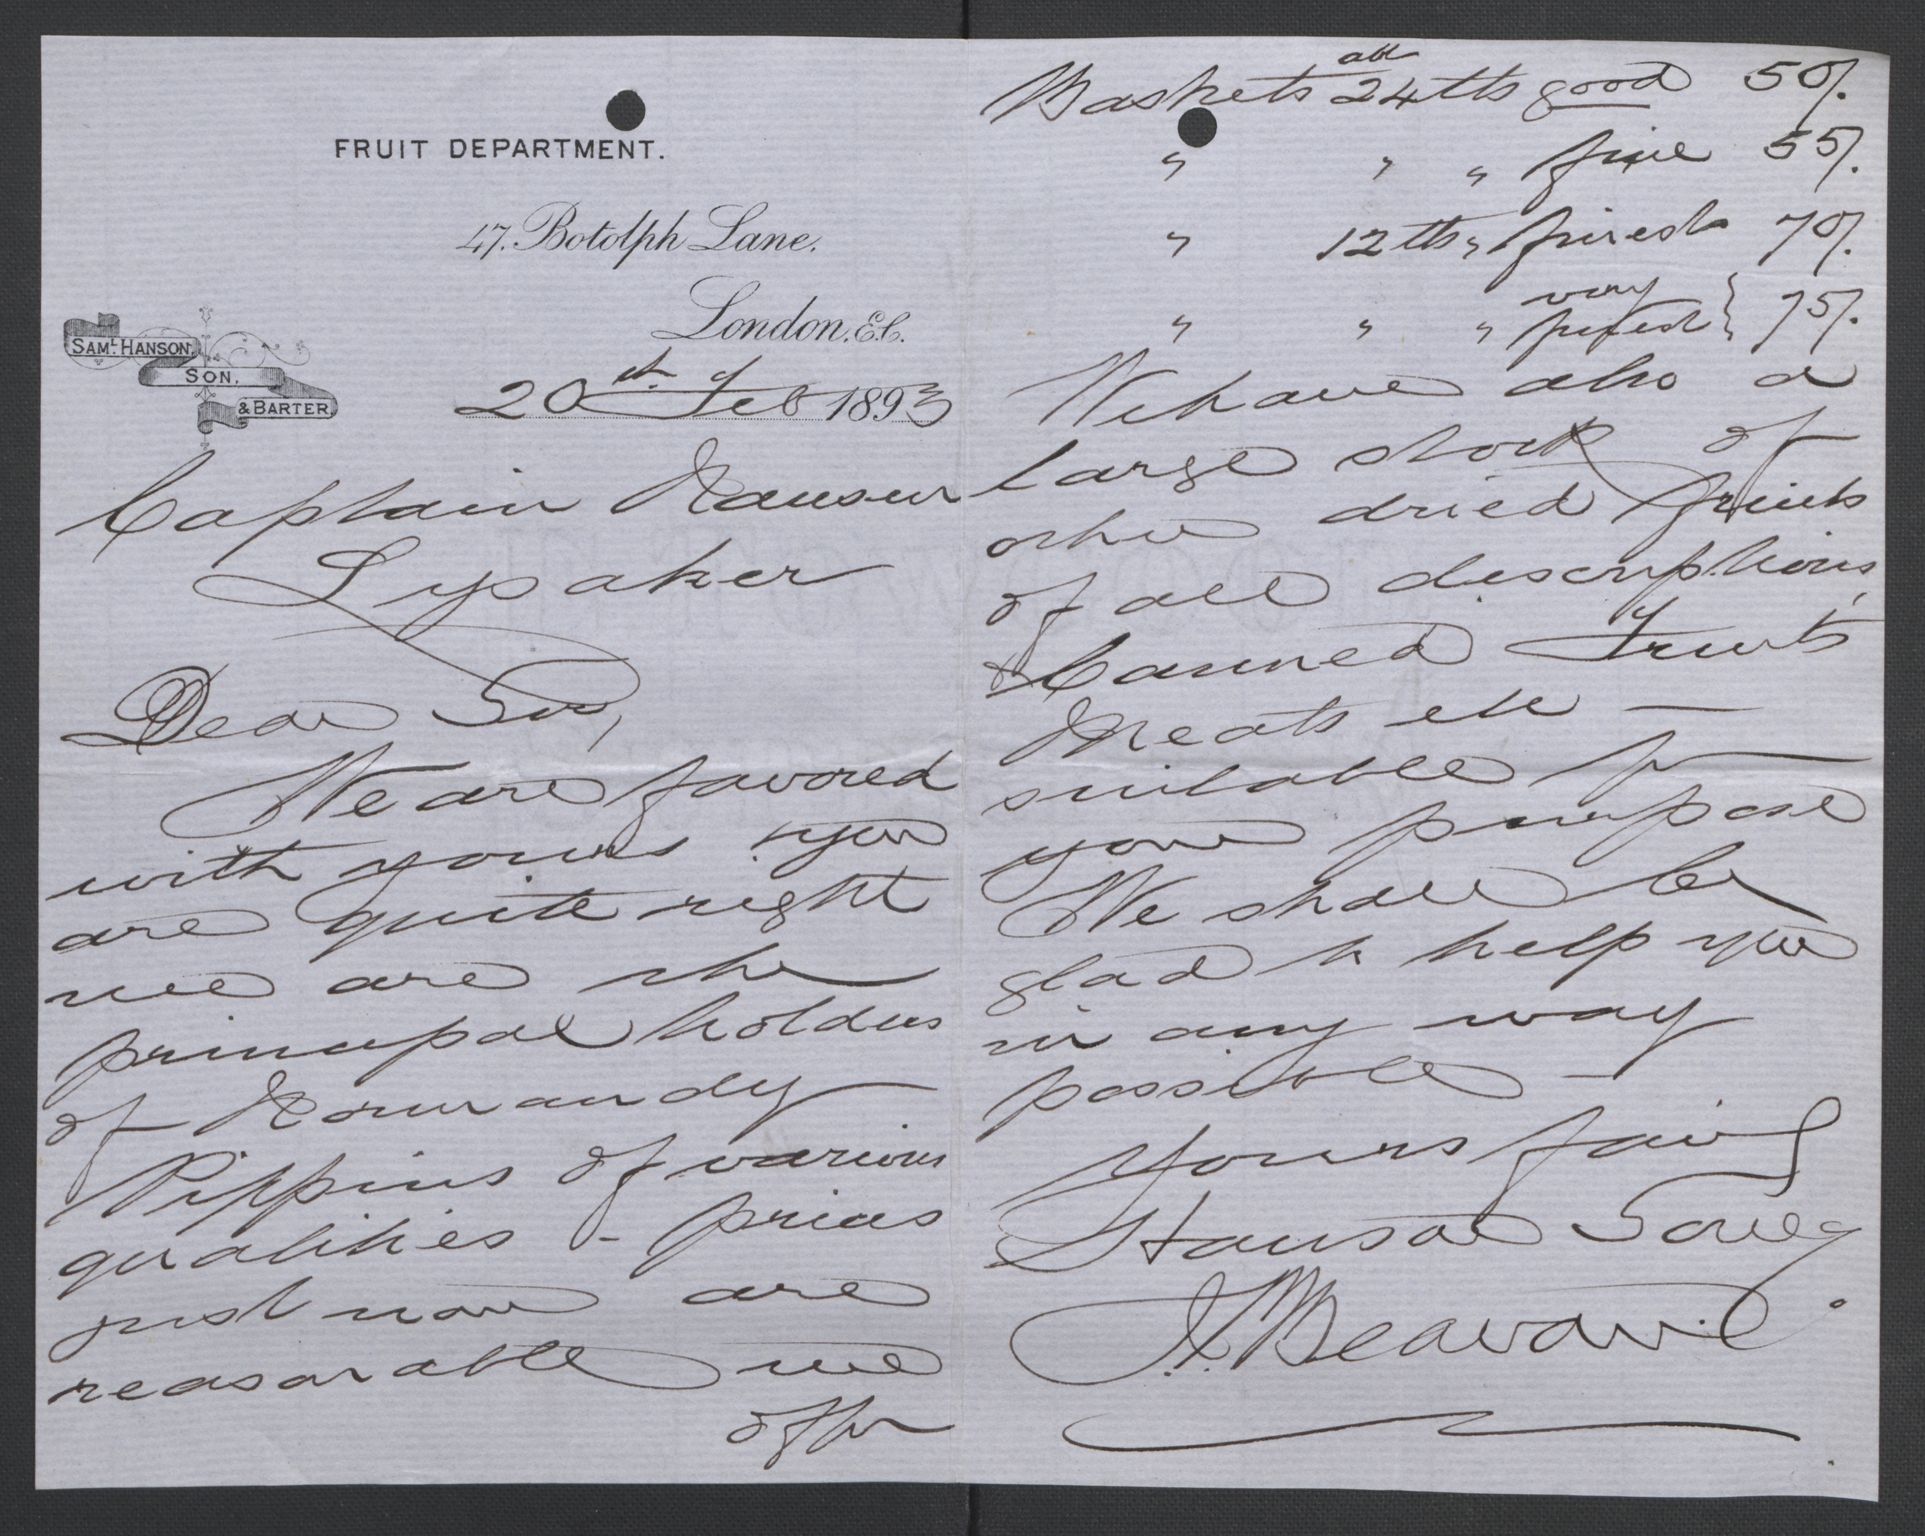 FRUIT DEPARTMENT.
47. Botolph Lane.
London. E.C.
SAML. HANSON,
SON,
& BARTER.
20th Feb 1893
Captain Nansen
Lysaker
Dear Sir,
We are favored
with yours. you
are quite right
we are the
principal holders
of Normandy
Pippins of various
qualities - prices
just now are
reasonable we
offer
Baskets abt 24 lbs good 50/.
" " " fine 55/.
" 12 lbs " finest 70/.
" " " very finest } 75/.
We have also a
large stock of
other dried fruits
of all descriptions,
& Canned Fruits
Meats etc —
suitable for
your purpose
We shall be
glad to help you
in any way
possible —
Yours fai
Hanson Son
J. Beavan